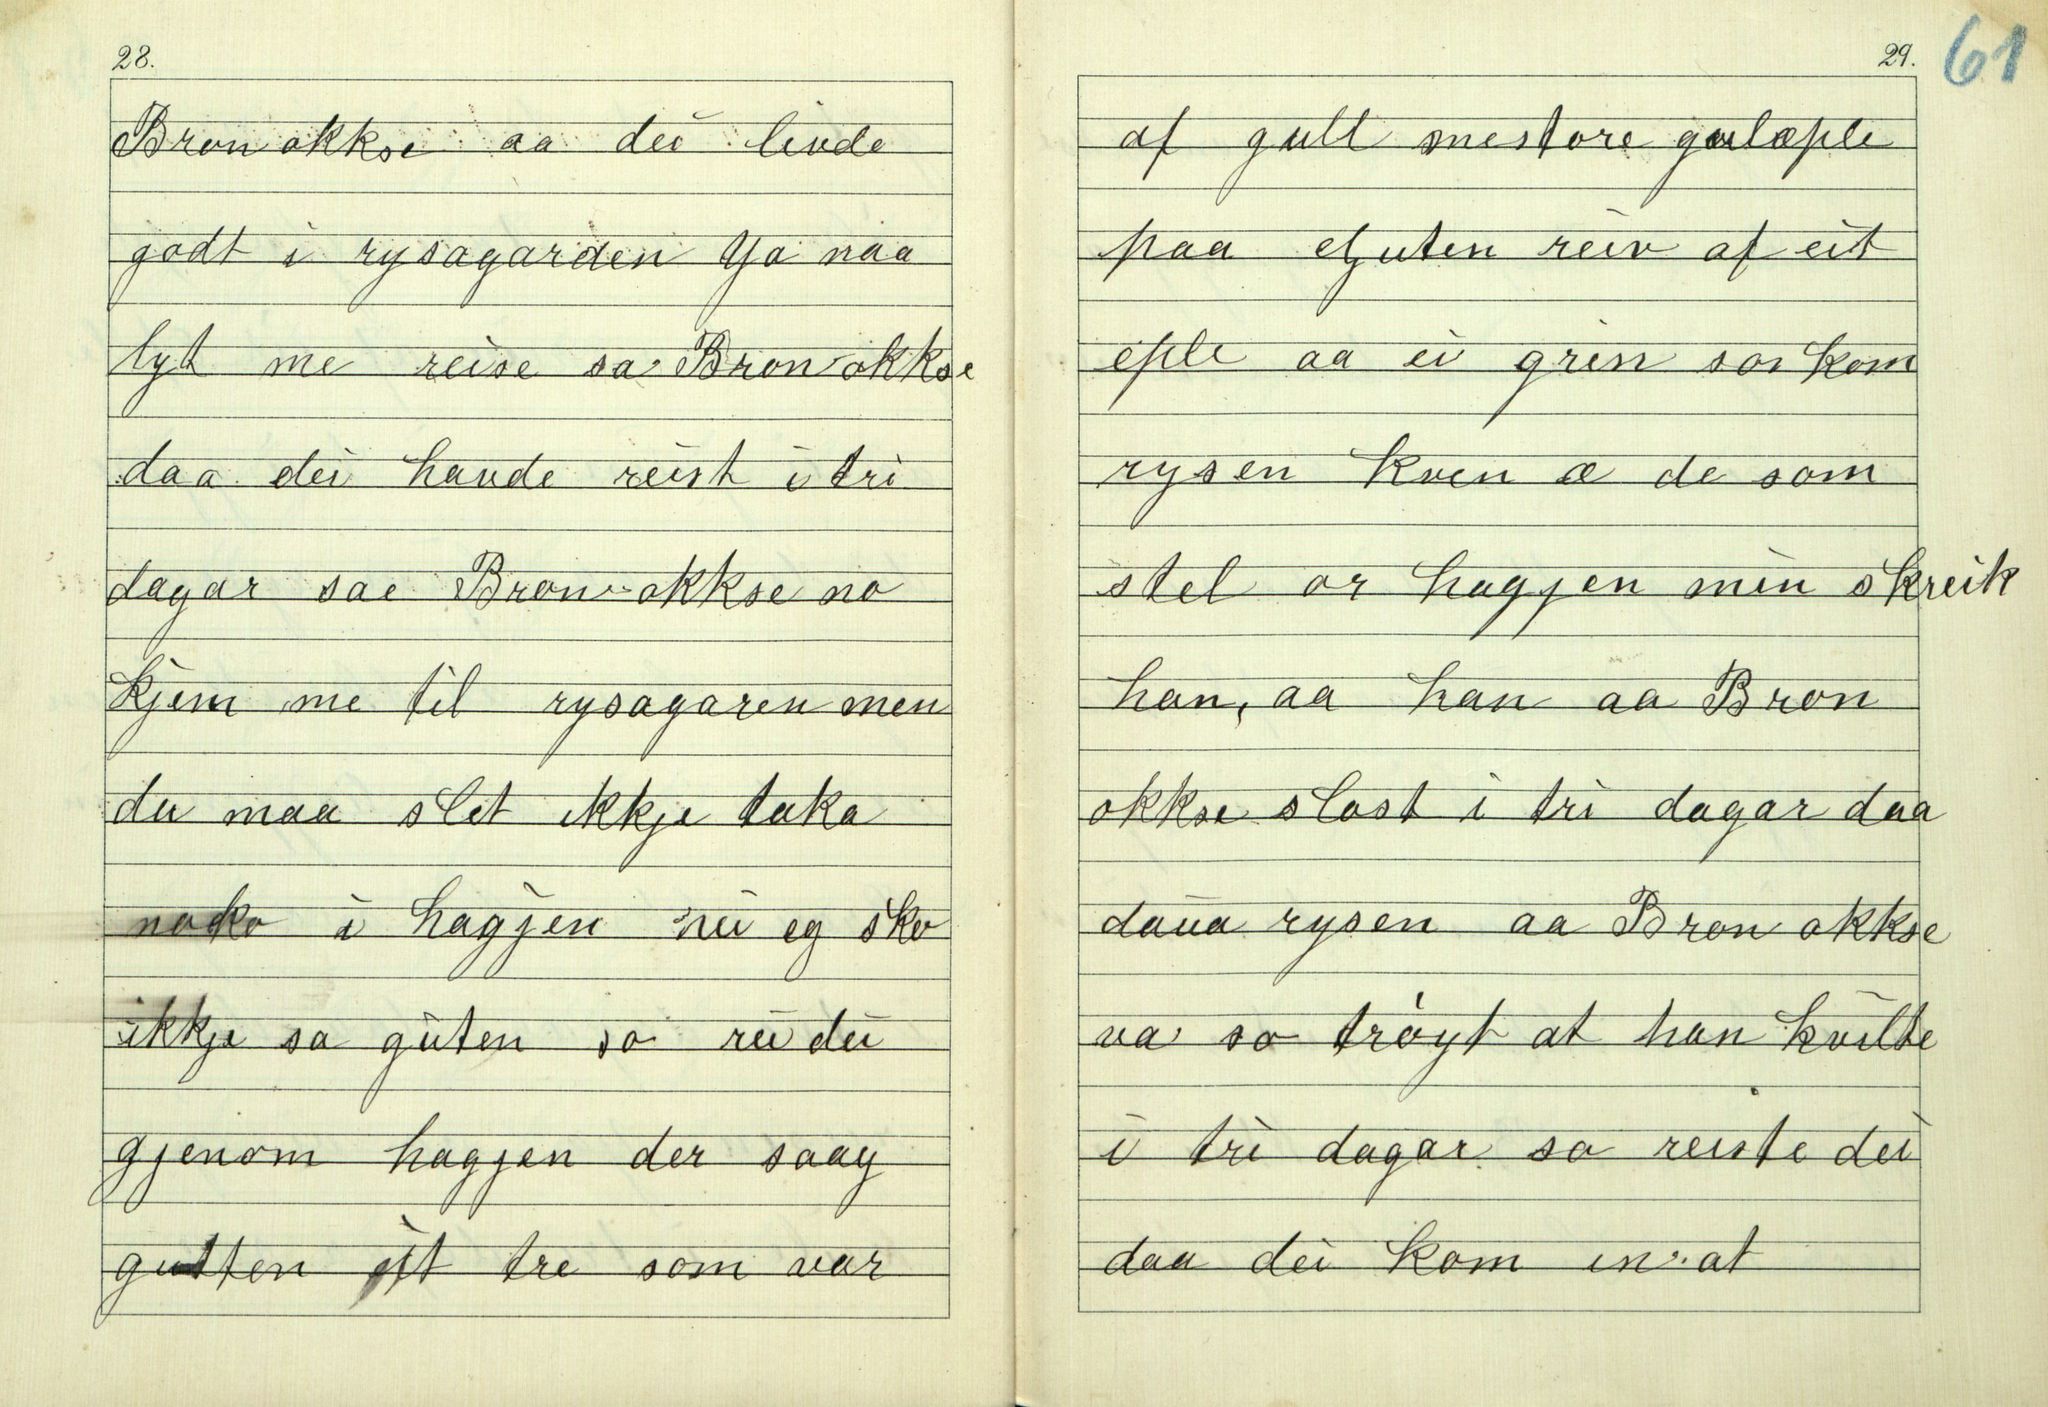 28.
Bron okkse aa dei livde
godt i rysagarden Ya naa
lyt me reise sa Bron okkse
daa dei havde reist i tri
dagar sae Bron okkse no
kjem me til rysagaren men
du maa slet ikkje taka
noko i hagjen nei eg sko
ikkje sa guten so rei dei
gjenom hagjen der saag
gutten eit tre som var
29.
61
af gull mestore gulæple
paa Guten reiv af eit
eple aa ei grin so kom
rysen kven æ de som
stel or hagjen min skreik
han, aa han aa Bron
okkse slost i tri dagar daa
daua rysen aa Bron okkse
va so trøyt at han kvilte
i tri dagar so reiste dei
daa dei kom in at